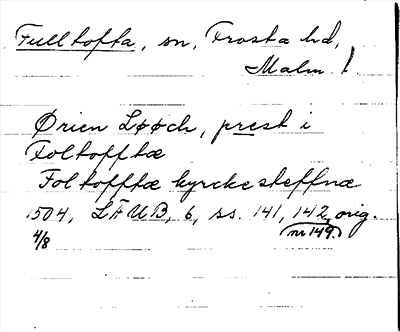 Fulltofta, sn, Frosta hd,
Malm. l.
Ørien Løøch, prest i
Foltofftæ
Foltofftæ kyrckesteffnæ
1504, LÄUB, 6, ss. 141, 142, orig.
4/8 nr 149.